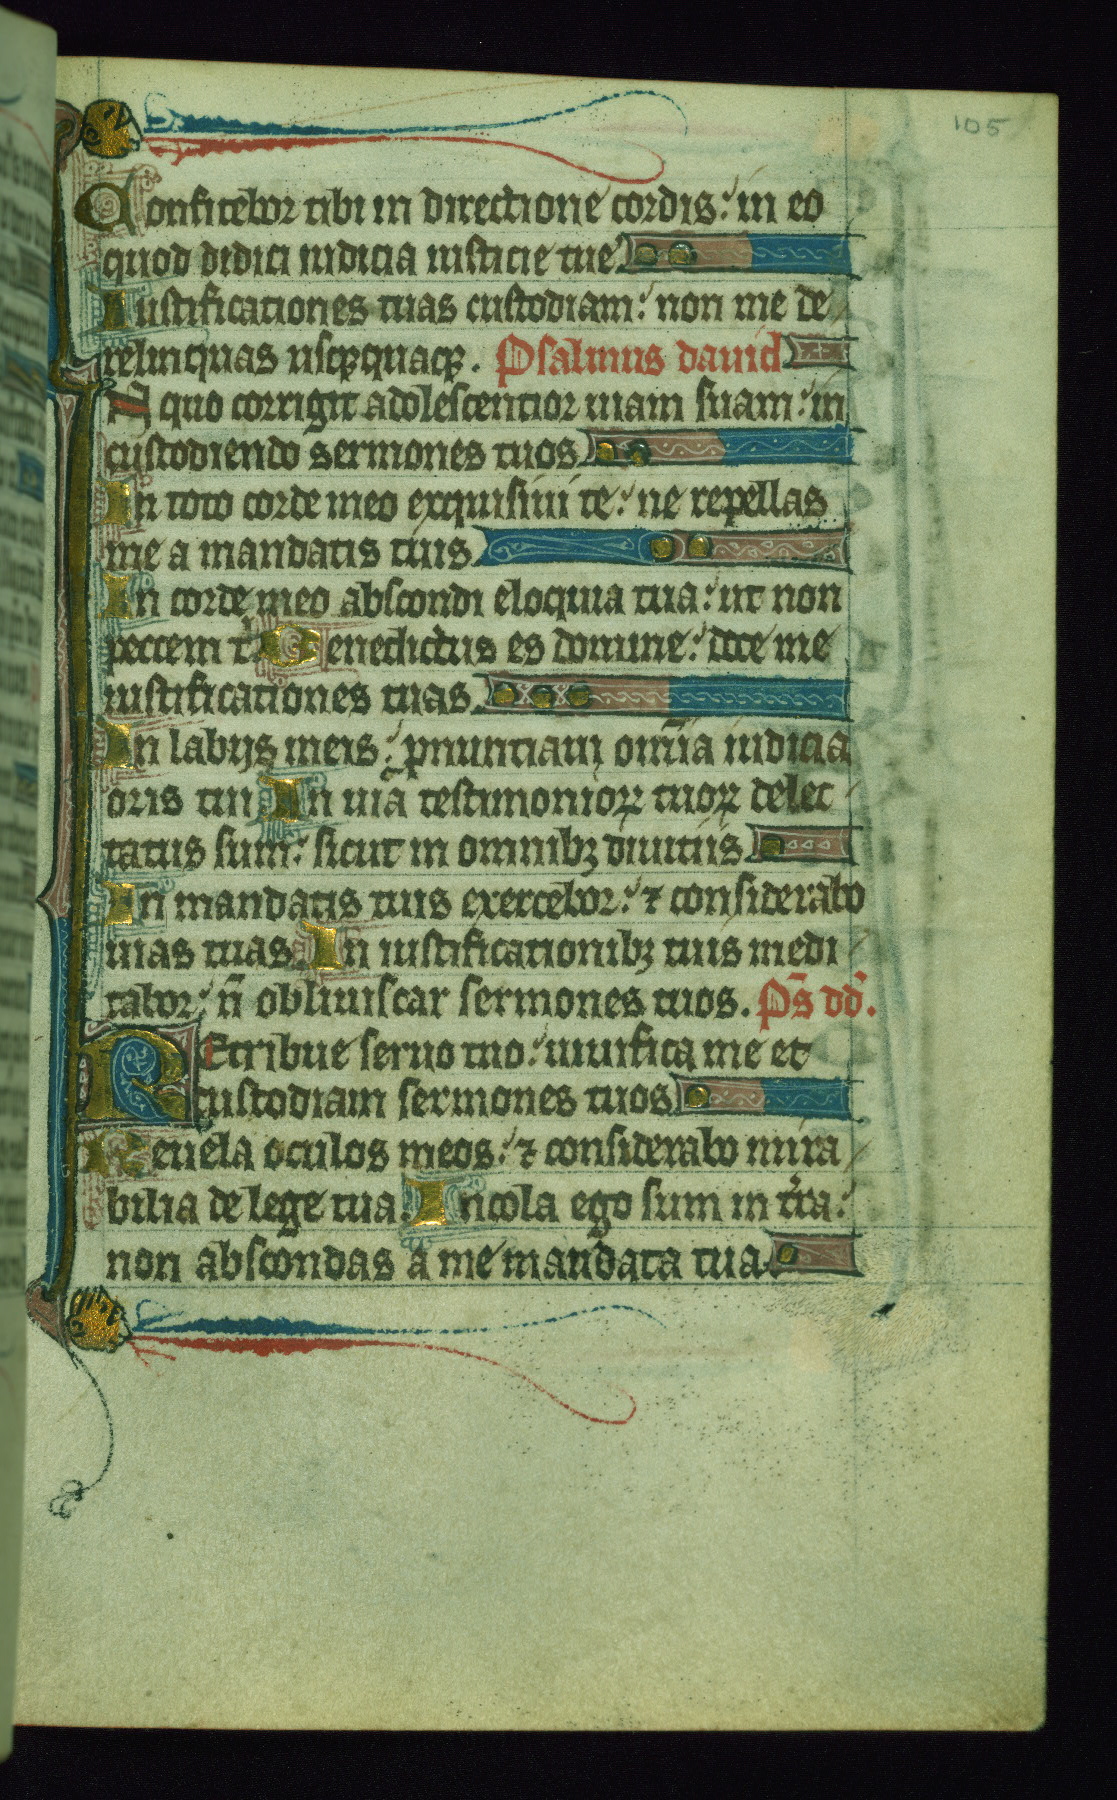 105
Confitebor tibi in directione cordis: in eo
quod didici iudicia iusticie tue
Iustificationes tuas custodiam: non me de
relinquas usqꝫquaqꝫ. Psalmus dauid
In quo corrigit adolescentior uiam suam: in
custodiendo sermones tuos
In toto corde meo exquisiui te: ne repellas
me a mandatis tuis
In corde meo abscondi eloquia tua: ut non
peccem tͥ Benedictus es domine: doce me
iustificationes tuas
In labijs meis: pnuntiaui om̄ia iudicia
oris tui In uia testimonioꝝ tuoꝝ delec
tatus sum: sicut in omnibꝫ diuitiis
In mandatis tuis exercebor: ⁊ considerabo
uias tuas In iustificationibꝫ tuis medi
tabor: n̄ obliuiscar sermones tuos. Ps̄ dd̄.
REtribue seruo tuo: uiuifica me et
custodiam sermones tuos
Reuela oculos meos: ⁊ considerabo mira
bilia de lege tua. Incola ego sum in tr̄a:
non abscondas a me mandata tua